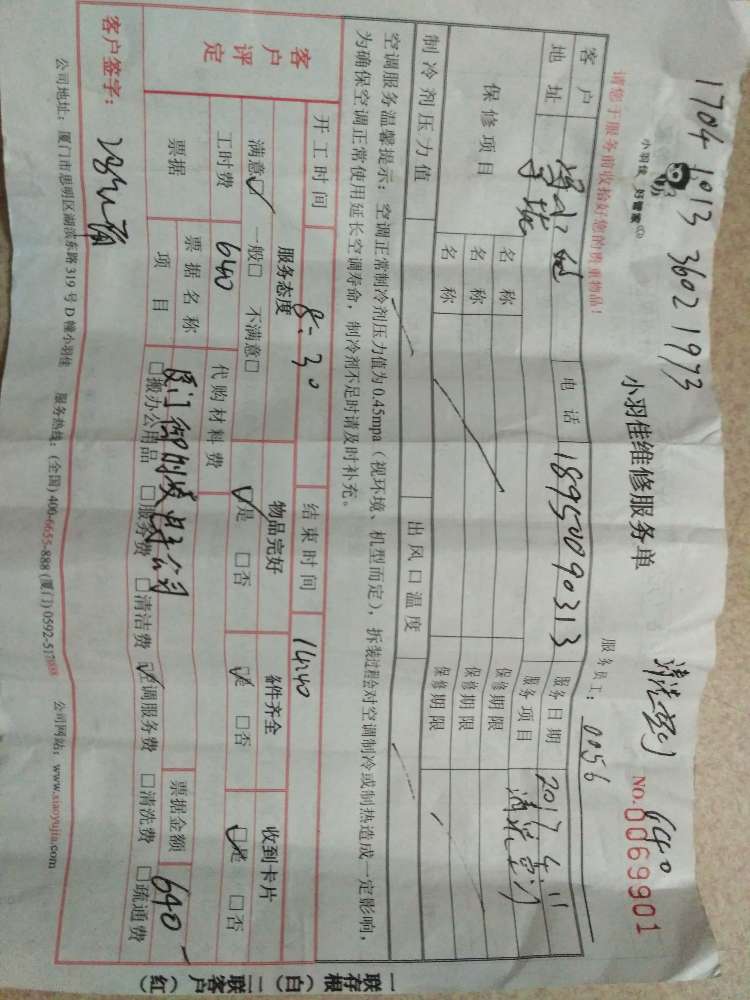 1704 1013 3602 1973
清洗空调 640
小羽佳 好管家
小羽佳维修服务单
NO.0069901
请您于服务前收拾好您的贵重物品！
服务员工： 0056
客户
电话 18950090313
服务日期 2017 4 11
地址
服务项目 清洗空调
保修项目
名称
保修期限
名称
保修期限
名称
保修期限
制冷剂压力值
出风口温度
空调服务温馨提示：空调正常制冷剂压力值为0.45mpa（视环境、机型而定），拆装过程会对空调制冷或制热造成一定影响，
为确保空调正常使用延长空调寿命，制冷剂不足时请及时补充。
开工时间 8:30
结束时间 14:40
客户评定
服务态度
物品完好
备件齐全
收到卡片
满意☑ 一般□ 不满意□
☑是 □否
☑是 □否
☑是 □否
工时费 640
代购材料费
票据
票据名称
票据金额 640-
项目
□搬办公用品 □服务费 □清洁费 ☑空调服务费 □清洗费 □疏通费
客户签字：
公司地址：厦门市思明区湖滨东路319号D幢小羽佳 服务热线：(全国) 400-6655-888 (厦门) 0592-517 公司网站：www.xiaoyujia.com
一联存根（白）二联客户（红）